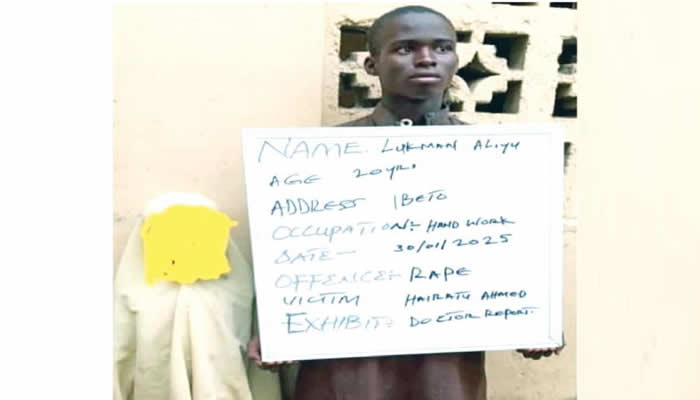 NAME. LUKMAN ALIYU
AGE 20yr.
ADDRESS IBETO
OCCUPATION:- HAND WORK
DATE- 30/01/2025
OFFENCE:- RAPE
VICTIM HAIRATU AHMED
EXHIBIT: DOCTOR REPORT.